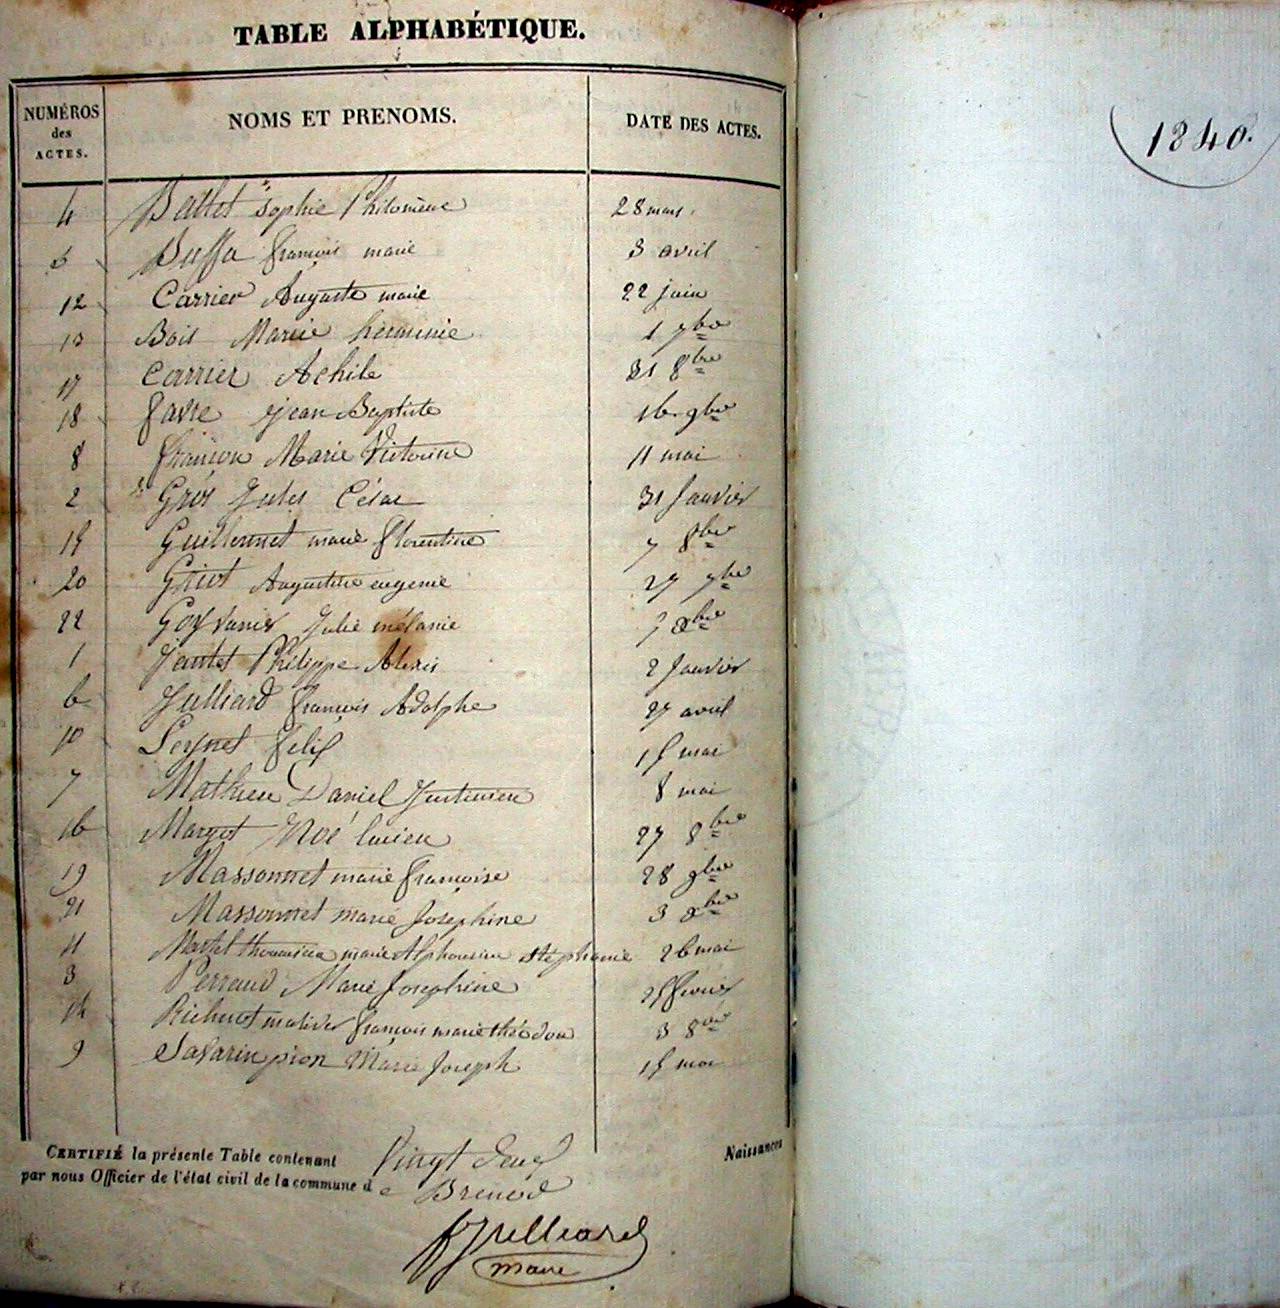 TABLE ALPHABÉTIQUE.
NUMÉROS des ACTES. NOMS ET PRENOMS. DATE DES ACTES.
4 Ballet Sophie Philomène 28 mars
5 Buffa françois marie 3 avril
12 Carrier Auguste marie 22 juin
13 Bois Marie herminie 1 7bre
17 Carrier Achile 31 8bre
18 favre jean Baptiste 16 9bre
8 françon Marie Victorine 11 mai
2 Gros Jules César 31 Janvier
15 Guillermet marie florentine 7 8bre
20 Griot Augustine eugenie 27 9bre
22 Goyvanier Julie mélanie 7 Xbre
1 Jantet Philippe Alexis 2 Janvier
6 Julliard françois Adolphe 27 avril
10 Leynet felix 15 mai
7 Mathieu Daniel Justinien 8 mai
16 Margot Noé lucien 27 8bre
19 Massonnet marie françoise 28 9bre
21 Massonnet marie Joséphine 3 Xbre
11 Martel marie Alphonsine stéphanie 26 mai
3 Perraud Marie Joséphine 25 fevrier
14 françois marie théodore 3 8bre
9 Savarin pion Marie Joseph 15 mai
CERTIFIÉ la présente Table contenant Vingt deux Naissances
par nous Officier de l'état civil de la commune de Brenod
fJulliard
maire
1840.